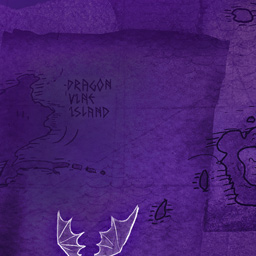 DRAGON
VINE
ISLAND